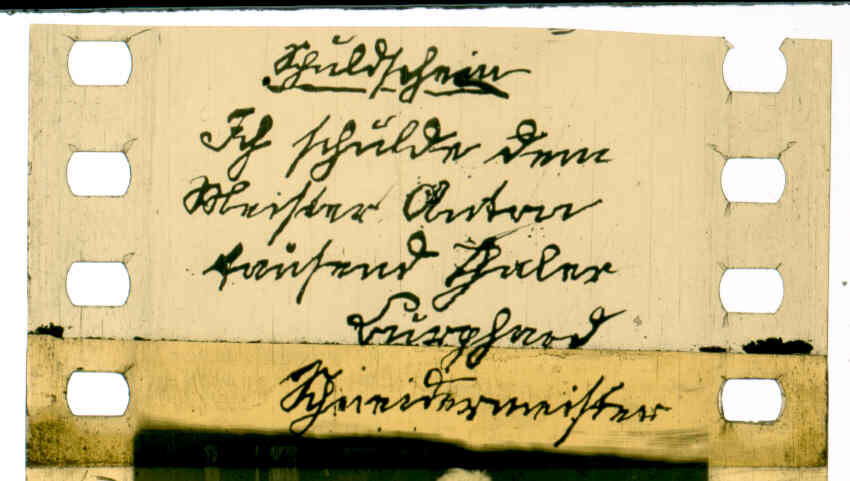 Schuldschein
Ich schulde dem
Meister Anton
tausend Thaler
Burghard
Schneidermeister